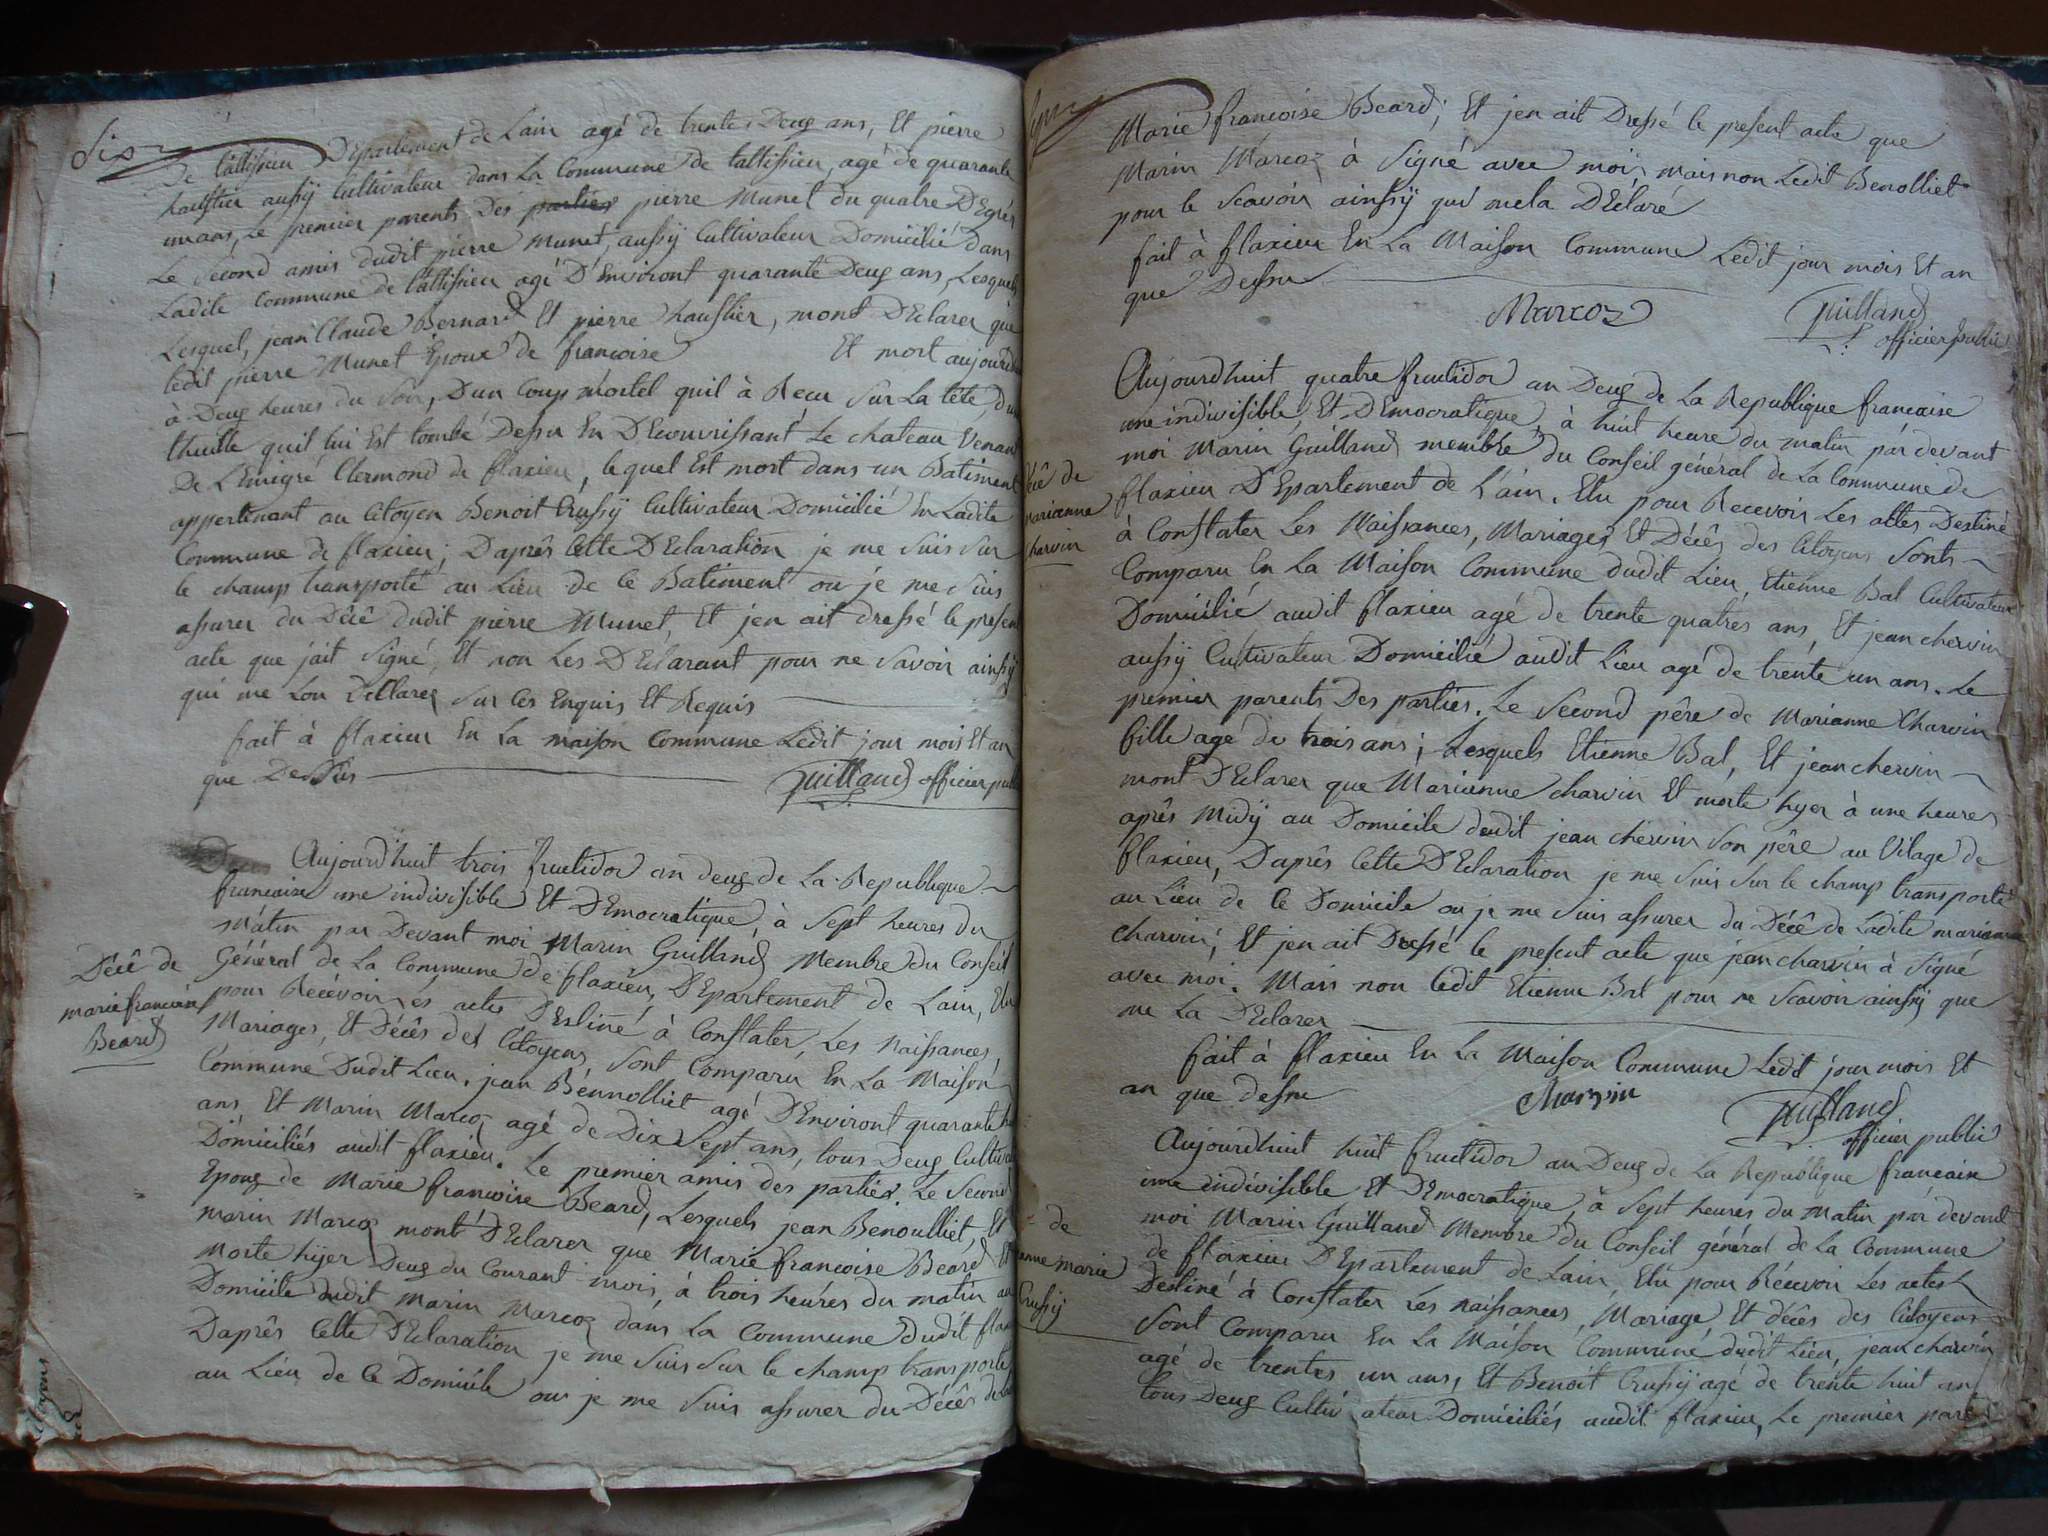 Six
De tallissieu Département de Lain agé de trente Deug ans, Et pierre
haustier aussy Cultivateur dans La Commune de tallissieu, agé de quarante
unans, Le premier parents Des parties pierre Munet du quatre Degrés
Le Second amis dudit pierre Munet, aussy Cultivateur Domicilié dans
Ladite Commune de tallissieu agé D'Environt quarante Deug ans, Lesquels
Lesquel, jean Claude Bernard Et pierre haustier, mont DEclarer que
ledit pierre Munet Epoux de francoise Et mort aujourd
à Deug heures du Soir, Dun Coup mortel quil à Recu Sur La tête, dun
thuille quil lui Est tombé Dessu En DEcouvrissant Le chateau Venant
De L'Emigré Clermond de flaxieu, le quel Est mort dans un Batiment
appertenant au Citoyen Benoit Crussy Cultivateur Domicilié En Ladite
Commune de flaxieu; Daprês Cette DEclaration je me Suis Sur
le champ transporté au Lieu de Ce Batiment ou je me Suis
assurer du Dêcê dudit pierre Munet, Et jen ait dressé le presen
acte que jait Signé, Et non Les DEclarant pour ne Savoir ainsÿ
qui me Lon DEllarés Sur Ces Enquis Et Requis
fait à flaxieu En La maison Commune Ledit jour mois Et an
que Dessus
Guilland officier pub
Aujourdhuit trois fructidor an deug de La Republique
francaise une indivisible Et DEmocratique, à Sept heures du
Mâtin par Devant moi Marin Guilland Membre du Conseil
Décê de
marie francoise
Beard
Général de La Commune de flaxieu, DEpartement de Lain, Elu
pour Récevoir Les actes DEstiné à Constater, Les Naissances,
Mariages, Et Décês des Citoyens Sont Comparu En La Maison
Commune Dudit Lieu, jean Bénnolliet agé D'Environt quarante
ans, Et Marin Marcoz agé de Dix Sept ans, tous Deug Cultiva
Domiciliés audit flaxieu. Le premier amis des parties. Le Second
Epoug de Marie francoise Beard, Lesquels jean Benoulliet, Et
Marin Marcoz mont DEclarer que Marie francoise Beard Et
Morte hÿer Deug du Courant mois, à trois heures du matin au
Domicile dudit Marin Marcoz dans La Commune dudit flax
Daprês Cette DEclaration je me Suis Sur le champ transporté
au Lieu de Ce Domicile ou je me Suis assurer du Décês de La
Marie francoise Beard; Et jen ait Dressé le present acte que
Marin Marcoz à Signé avec moi, mais non Ledit Benolliet
pour le Scavoir ainsÿ qui mela DEclaré
fait à flaxieu En La Maison Commune Ledit jour mois Et an
que Dessu
Marcoz
Guilland
officier public
Aujourdhuit quatre fructidor an Deug de La Republique francaise
une indivisible, Et DEmocratique, à huit heure du matin par devant
moi Marin Guilland membre du Conseil général de La Commune de
Dêcê de
marianne
charvin
flaxieu DEpartement de L'ain. Elu pour Recevoir Les actes Destiné
à Constater Les Naissances, Mariages Et Décês des Citoyens Sonts
Comparu En La Maison Commune dudit Lieu, Etienne Bal Cultivateur
Domicilié audit flaxieu agé de trente quatres ans, Et jean chervin
aussÿ Cultivateur Domicilié audit Lieu agé de trênte un ans. Le
premier parents Des parties. Le Second pêre de Marianne Charvin
fille agé de trois ans; Lesquels Etienne Bal, Et jean chervin
mont DEclarer que Marianne charvin Et morte hyer à une heure
aprês Midÿ au Domicile dudit jean chervin Son pêre au Vilage de
flaxieu, Daprês Cette DEclaration je me Suis Sur le champ transporté
au Lieu de Ce Domicile ou je me Suis assurer du Décê de Ladite marianne
charvin; Et jen ait Dressé le present acte que jean charvin à Signé
avec moi. Mais non ledit Etienne Bal pour ne Scavoir ainsÿ que
me La DEclarer
fait à flaxieu En La Maison Commune Ledit jour mois Et
an que dessu
Charvin
Guilland
officier public
Aujourdhuit huit fructidor an Deug de La Republique francaise
une indivisible Et DEmocratique, à Sept heures du Matin par devant
moi Marin Guilland Membre du Conseil général de La Commune
de
anne marie
Crussÿ
de flaxieu DEpartement de Lain, Elu pour Récevoir Les actes
Destiné à Constater Les naissances, Mariage Et décês des Citoyens
Sont Comparu En La Maison Commune dudit Lieu, jean charvin
agé de trentes un ans, Et Benoit Crussÿ agé de trente huit an
tous Deug Cultivateur Domiciliés audit flaxieu, Le premier paré